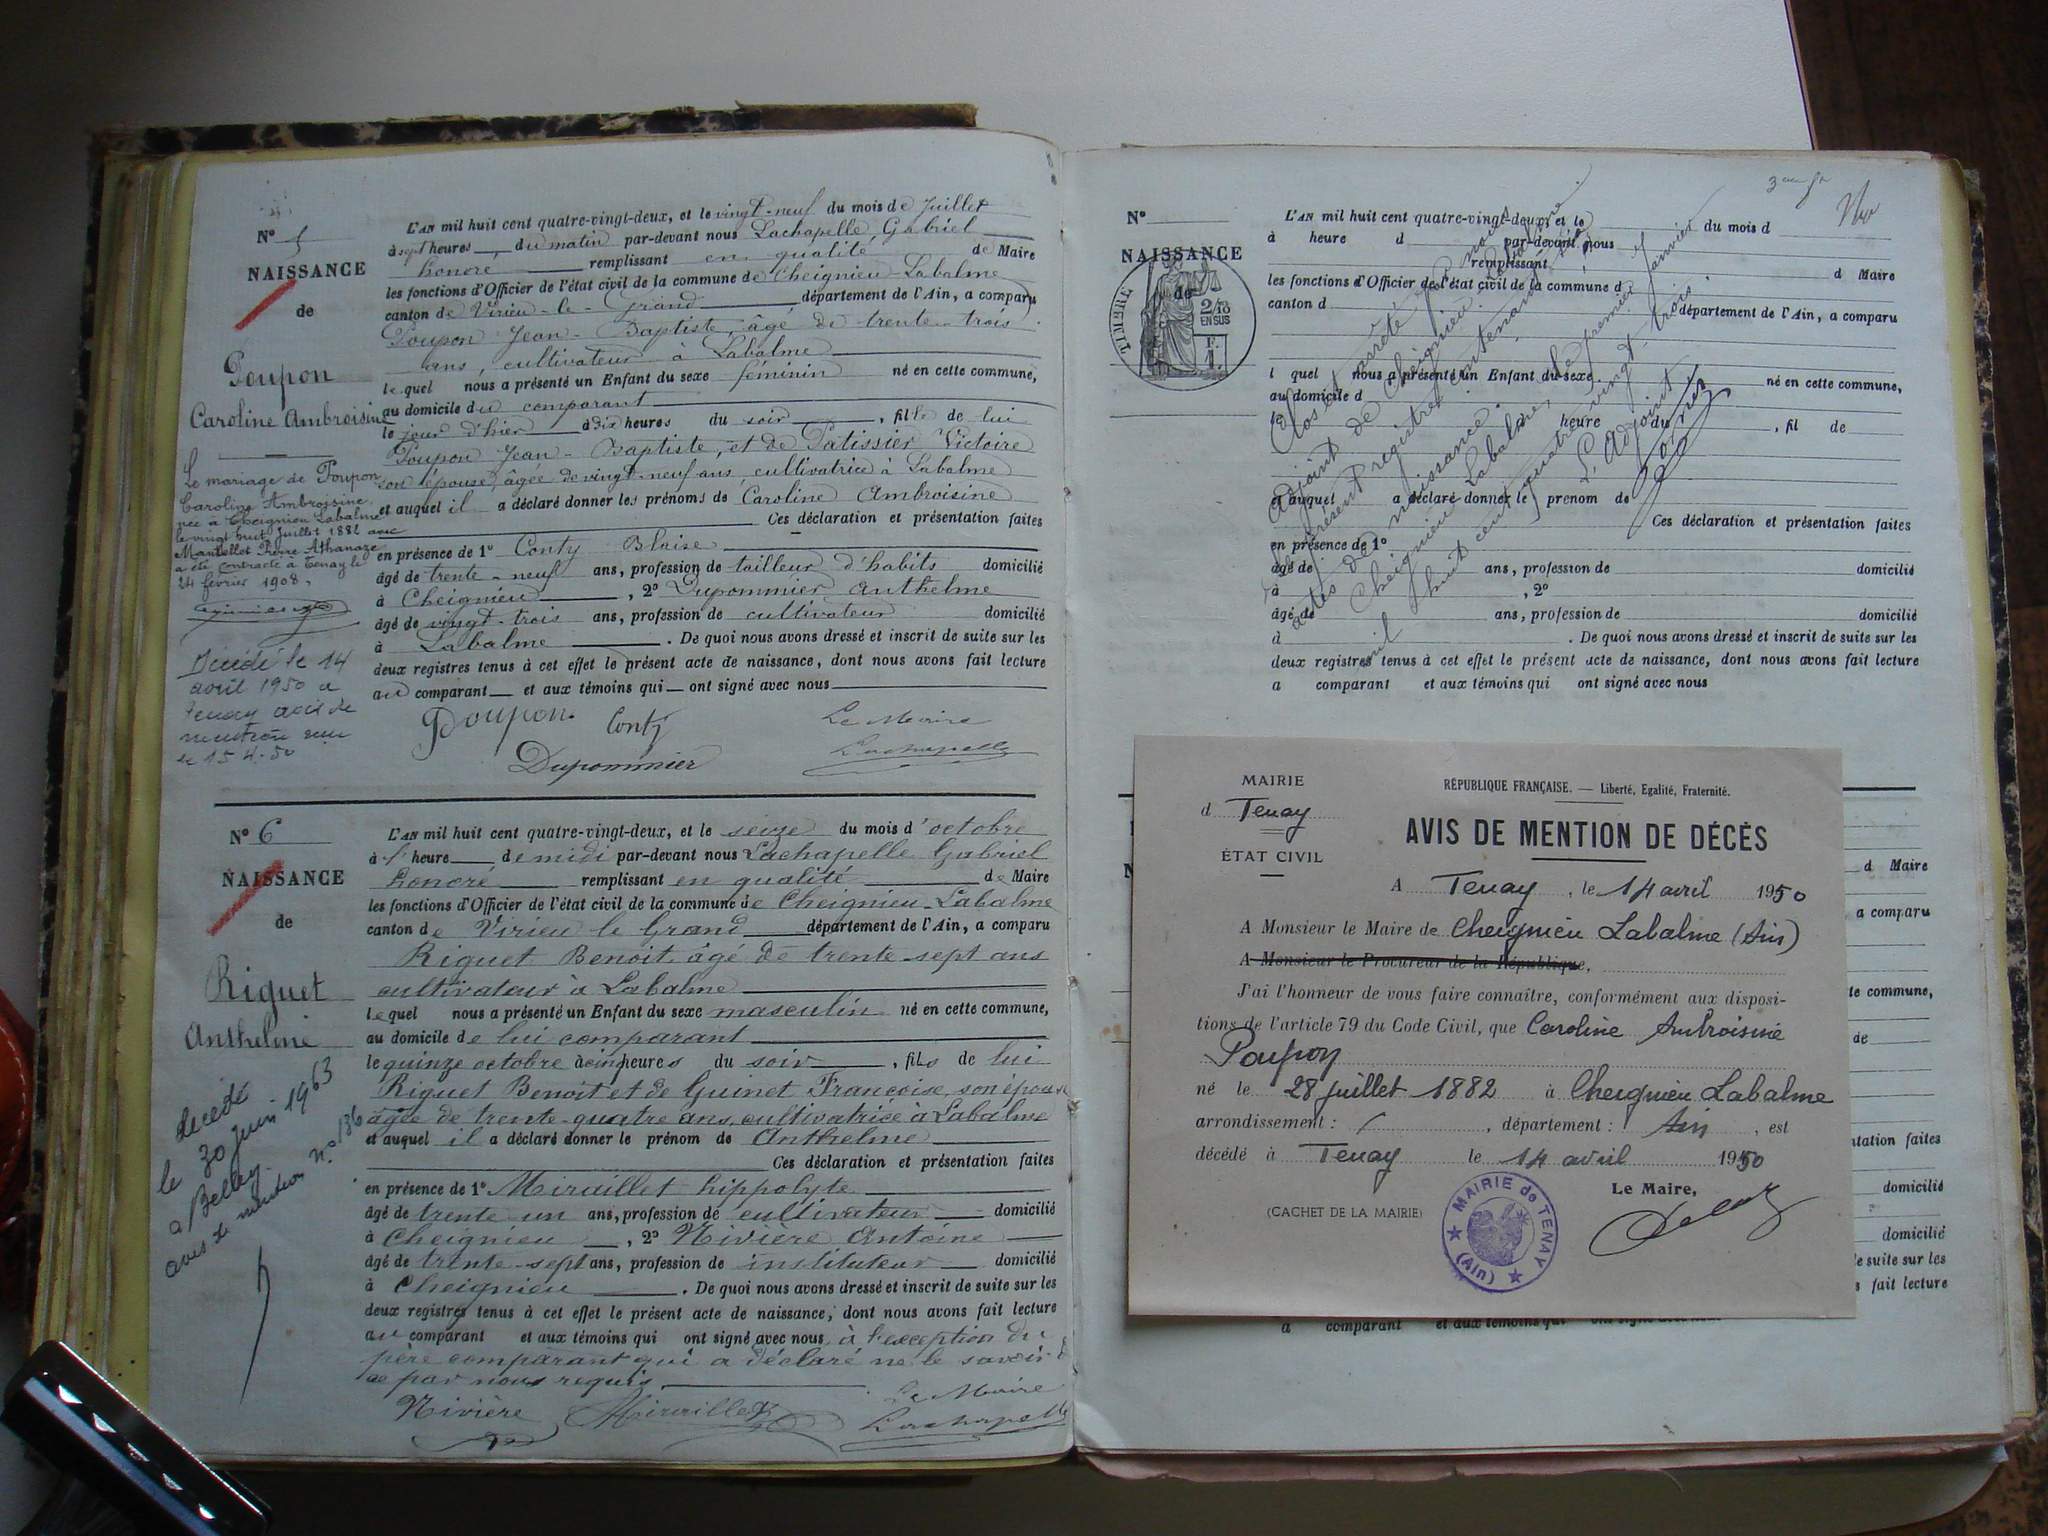 N° 5
NAISSANCE
de
Poupon
Caroline Ambroisine
Le mariage de Poupon
Caroline Ambroisine
née à Cheignieu Labalme
le vingt huit Juillet 1882 avec
Pierre Athanaze
a été contracté à Tenay le
24 février 1908.
Décédé le 14
avril 1950 a
Tenay avis de
mention
le 15.4.50
L'AN mil huit cent quatre-vingt-deux, et le vingt-neuf du mois de Juillet
à sept heures du matin par-devant nous Lachapelle Gabriel
honoré remplissant en qualité de Maire
les fonctions d'Officier de l'état civil de la commune de Cheignieu-Labalme
canton de Virieu-le-Grand département de l'Ain, a comparu
Poupon Jean-Baptiste, âgé de trente-trois
ans, cultivateur à Labalme
lequel nous a présenté un Enfant du sexe féminin né en cette commune,
au domicile du comparant
le jour d'hier à dix heures du soir, fille de lui
Poupon Jean-Baptiste, et de Patissier Victoire
son épouse, âgée de vingt-neuf ans, cultivatrice à Labalme
et auquel il a déclaré donner les prénoms de Caroline Ambroisine
Ces déclaration et présentation faites
en présence de 1° Conty Blaise
âgé de trente-neuf ans, profession de tailleur d'habits domicilié
à Cheignieu, 2° Dupommier Anthelme
âgé de vingt-trois ans, profession de cultivateur domicilié
à Labalme. De quoi nous avons dressé et inscrit de suite sur les
deux registres tenus à cet effet le présent acte de naissance, dont nous avons fait lecture
au comparant et aux témoins qui ont signé avec nous
Poupon Conty Le Maire
Dupommier Lachapelle
N° 6
NAISSANCE
de
Riguet
Anthelme
décédé
le 30 juin 1963
a Belley
avis de mention n° 136
L'AN mil huit cent quatre-vingt-deux, et le seize du mois d'octobre
à l'heure de midi par-devant nous Lachapelle Gabriel
honoré remplissant en qualité de Maire
les fonctions d'Officier de l'état civil de la commune de Cheignieu-Labalme
canton de Virieu le Grand département de l'Ain, a comparu
Riguet Benoit âgé de trente-sept ans
cultivateur à Labalme
lequel nous a présenté un Enfant du sexe masculin né en cette commune,
au domicile de lui comparant
le quinze octobre à cinq heures du soir, fils de lui
Riguet Benoit et de Guinet Françoise, son épouse
âgée de trente-quatre ans, cultivatrice à Labalme
et auquel il a déclaré donner le prénom de Anthelme
Ces déclaration et présentation faites
en présence de 1° Miraillet hippolyte
âgé de trente un ans, profession de cultivateur domicilié
à Cheignieu, 2° Rivière Antoine
âgé de trente-sept ans, profession de instituteur domicilié
à Cheignieu. De quoi nous avons dressé et inscrit de suite sur les
deux registres tenus à cet effet le présent acte de naissance, dont nous avons fait lecture
au comparant et aux témoins qui ont signé avec nous, à l'exception du
père comparant qui a déclaré ne le savoir
de par nous requis.
Rivière Miraillet Le Maire
Lachapelle
N°
NAISSANCE
de
TIMBRE
2/10
EN SUS
F.
1.
L'AN mil huit cent quatre-vingt-deux, et le du mois d
à heure d par-devant nous
remplissant d Maire
les fonctions d'Officier de l'état civil de la commune d
canton d département de l'Ain, a comparu
l quel nous a présenté un Enfant du sexe né en cette commune,
au domicile d
le heure du , fil de
et auquel a déclaré donner le prenom de
Ces déclaration et présentation faites
en présence de 1°
âgé de ans, profession de domicilié
à , 2°
âgé de ans, profession de domicilié
à . De quoi nous avons dressé et inscrit de suite sur les
deux registres tenus à cet effet le présent acte de naissance, dont nous avons fait lecture
a comparant et aux témoins qui ont signé avec nous
Clos et arrêté par nous
Adjoint de Cheignieu-Labalme
le présent registre contenant six
actes de naissance.
Cheignieu Labalme, le premier Janvier
mil huit cent quatre vingt-trois.
L'Adjoint
MAIRIE
d Tenay
ÉTAT CIVIL
RÉPUBLIQUE FRANÇAISE. — Liberté, Egalité, Fraternité.
AVIS DE MENTION DE DÉCÈS
A Tenay, le 14 avril 1950
A Monsieur le Maire de Cheignieu Labalme (Ain)
A Monsieur le Procureur de la République,
J'ai l'honneur de vous faire connaître, conformément aux disposi-
tions de l'article 79 du Code Civil, que Caroline Ambroisine
Poupon
né le 28 juillet 1882 à Cheignieu Labalme
arrondissement : / , département : Ain, est
décédé à Tenay le 14 avril 1950
Le Maire,
(CACHET DE LA MAIRIE)
MAIRIE de TENAY
(Ain)
d Maire
a comparu
te commune,
de
ntation faites
domicilié
domicilié
de suite sur les
s fait lecture
a comparant et aux témoins qui ont signé avec nous